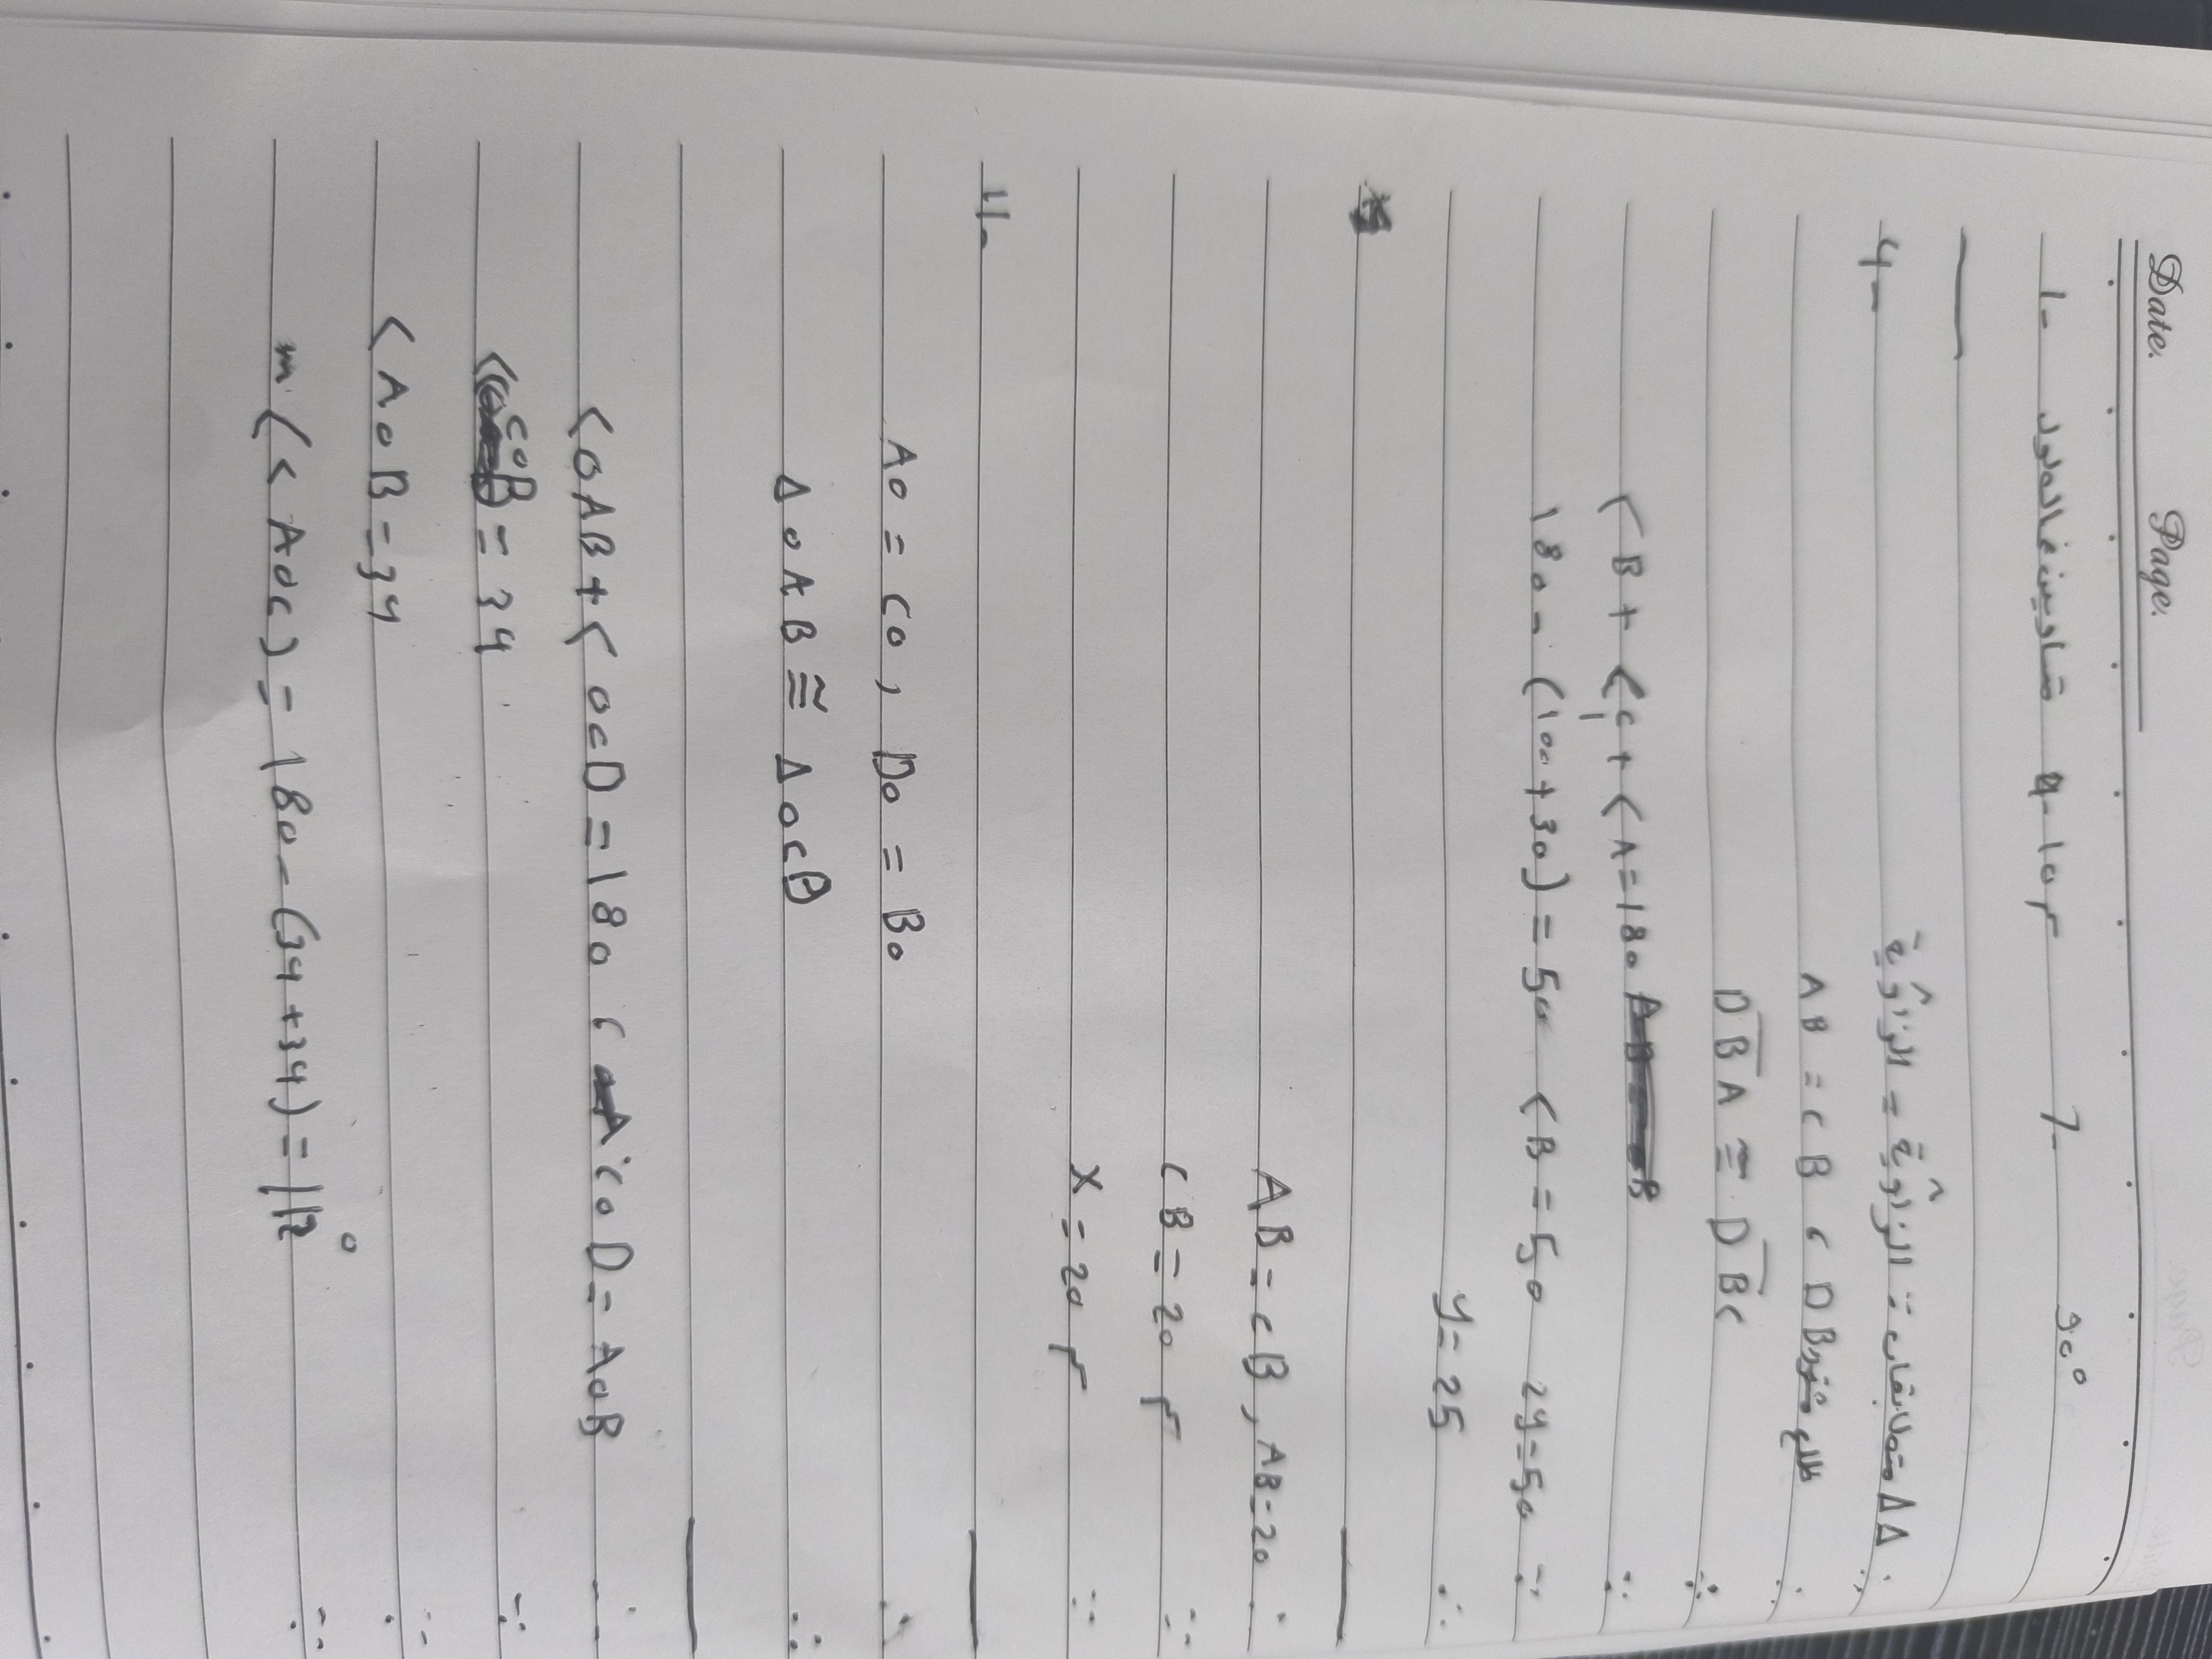 Date. Page.
1- متساويين في الطول 9- 10 م 7- 90°
4-
∵ ΔΔ متطابقات ∵ الزاوية = الزاوية
∵ AB = CB , DB ضلع مشترك
∴ DBA ≅ DBC
∵ <B + <C + <A = 180
∵ 180 - (100+30) = 50 <B = 50 2y = 50
∴ y = 25
∵ AB = CB , AB = 20
∴ CB = 20 م
∴ X = 20 م
11-
∵ AO = CO , DO = BO
∴ Δ OAB ≅ Δ OCD
∵ <OAB + <OCD = 180 , COD = AOB
∵ COB = 34
∴ <AOB = 34
∴ m(<AOC) = 180 - (34+34) = 112°